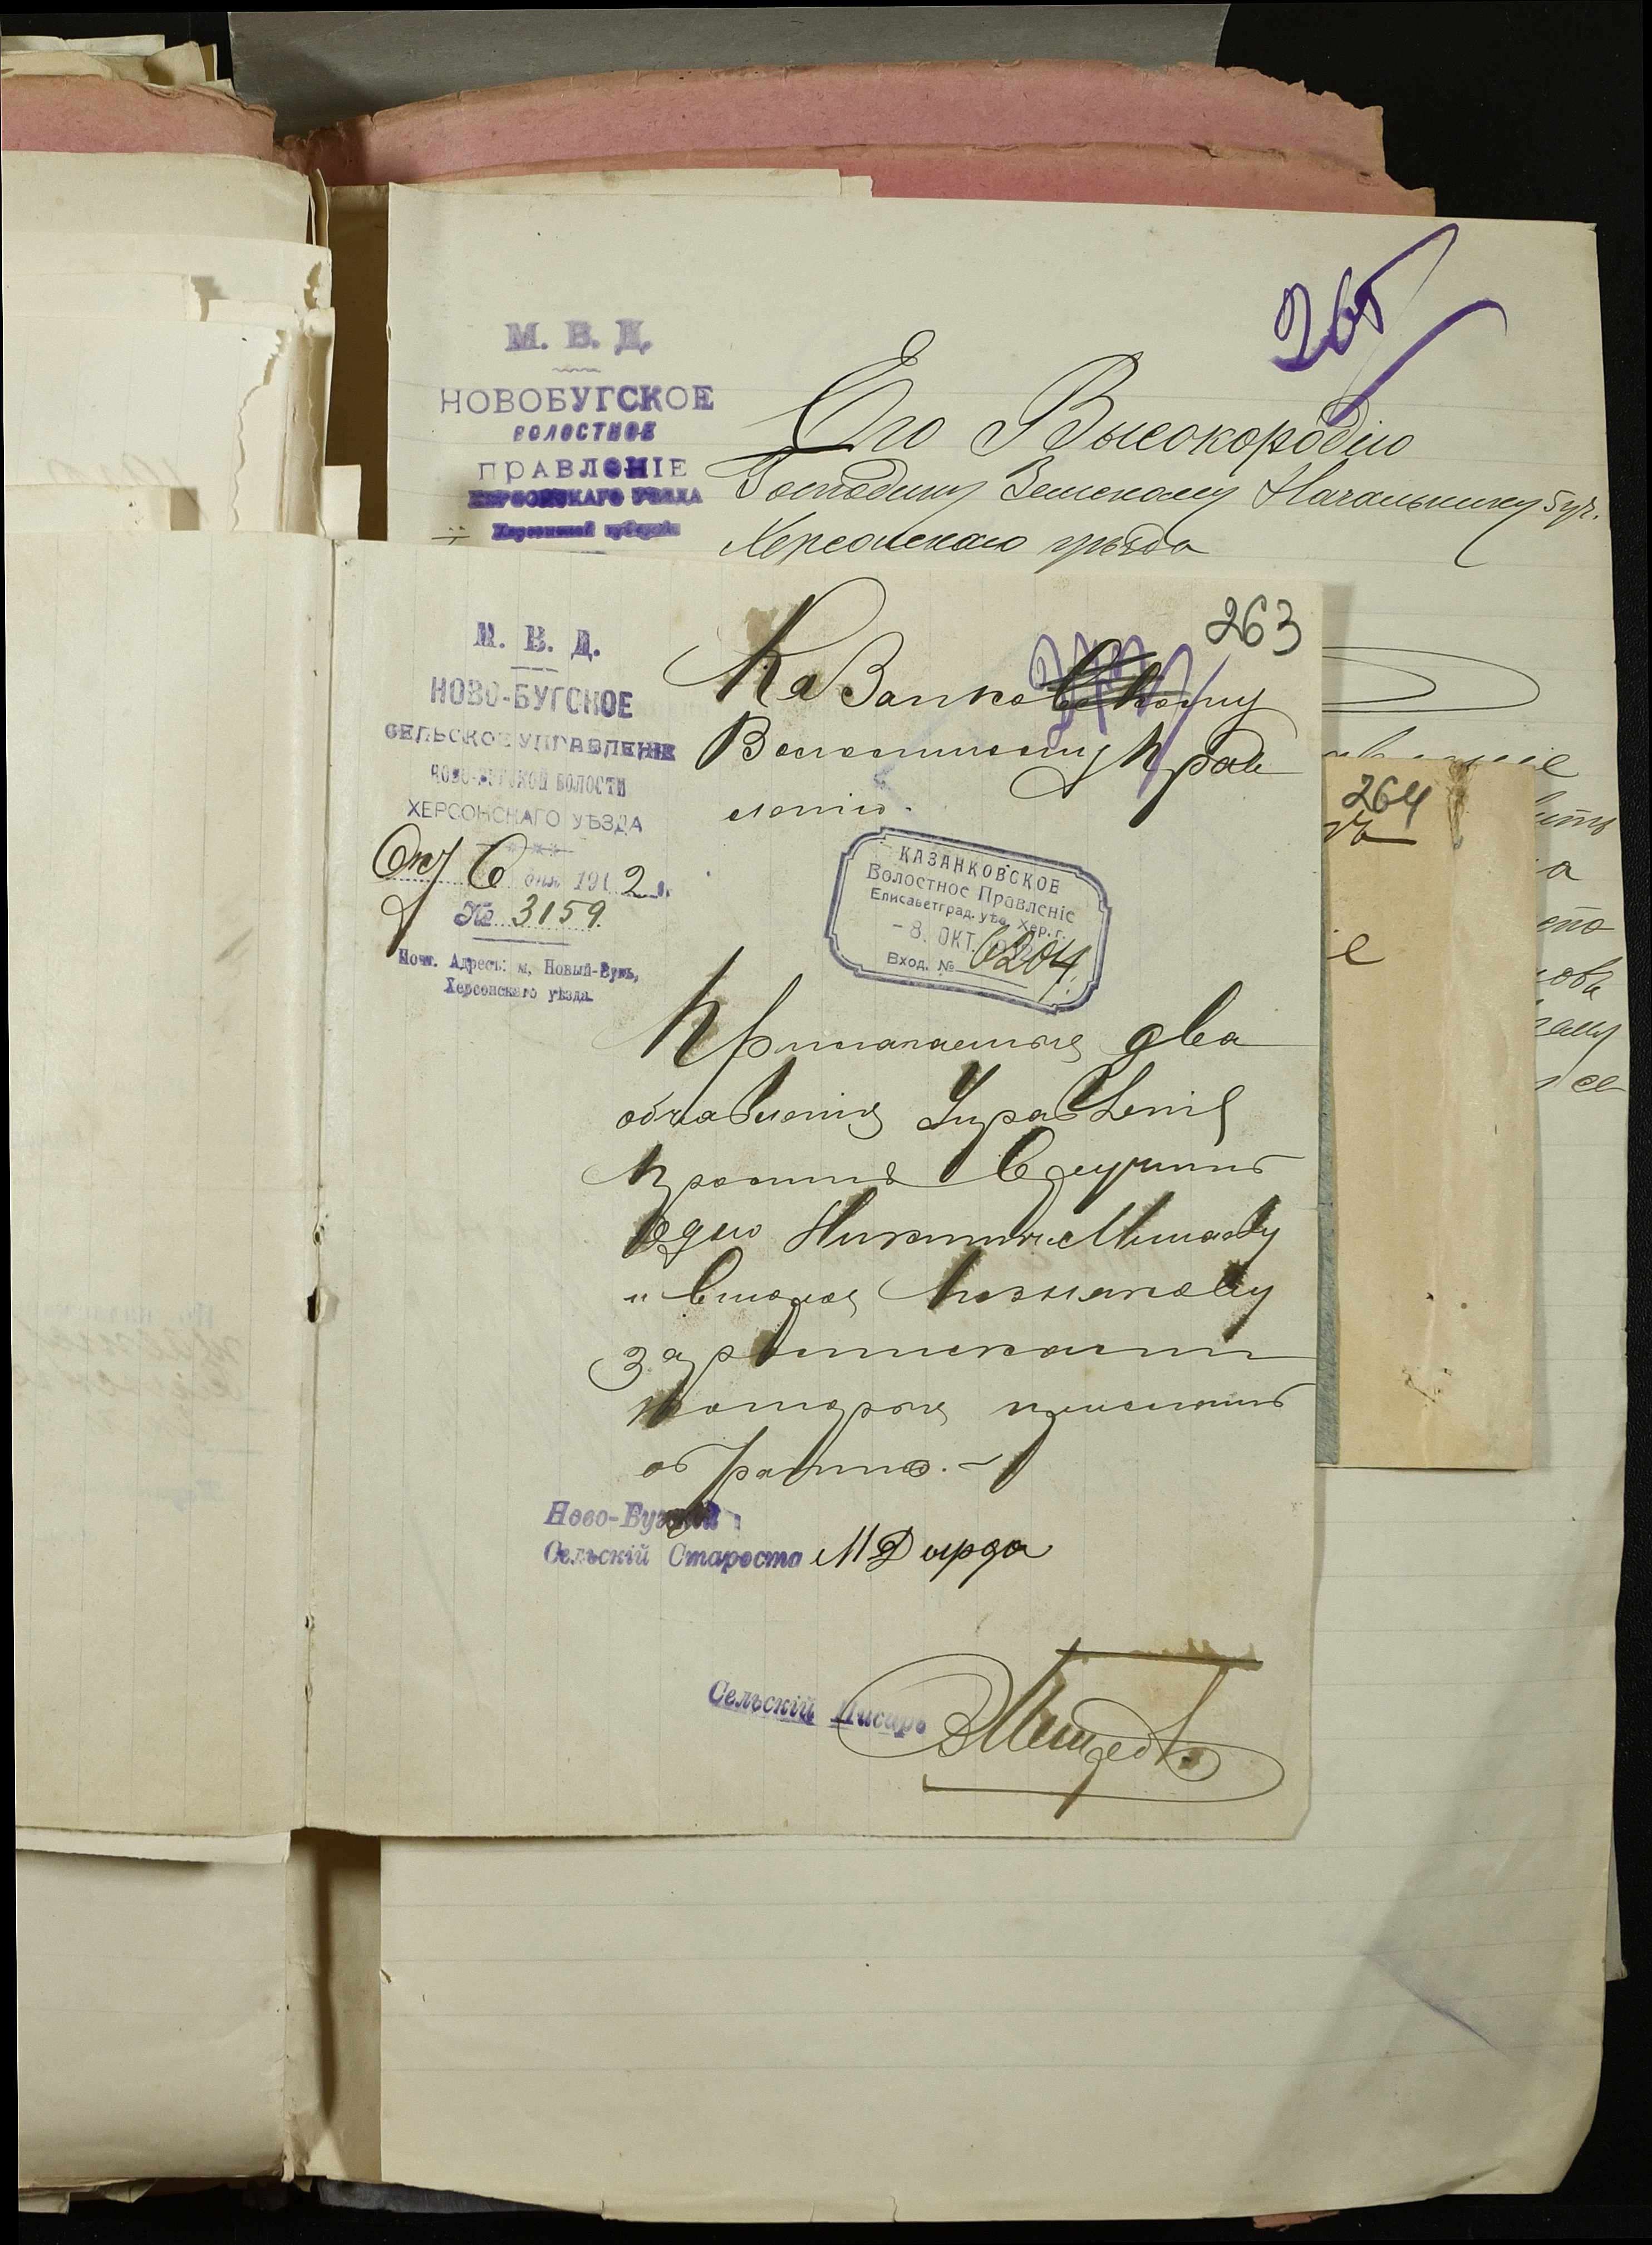 265
М. В. Д.
НОВОБУГСКОЕ
ВОЛОСТНОЕ
ПРАВЛЕНІЕ
ХЕРСОНСКАГО УѢЗДА
Херсонской губерніи
Его Высокородію
Господину Земскому Начальнику 5 уч.
Херсонскаго уѣзда
263
М. В. Д.
НОВО-БУГСКОЕ
СЕЛЬСКОЕ УПРАВЛЕНІЕ
НОВО-БУГСКОЙ ВОЛОСТИ
ХЕРСОНСКАГО УѢЗДА
Окт 6 дня 1912 г.
№ 3159.
Почт. Адресъ: м. Новый-Бугъ,
Херсонскаго уѣзда.
Казанковскому
Волостному Прав
ленію.
КАЗАНКОВСКОЕ
Волостное Правленіе
Елисаветград. уѣз. Хер. г.
- 8. ОКТ. 1912
Вход. № 6204
Прилагаемыя два
объявленія Управленіе
проситъ вручить
одно Никитѣ
и второе
за росписками
которыя
обратно.-
Ново-Бугскій
Сельскій Староста М Дырда
Сельскій Писарь
264